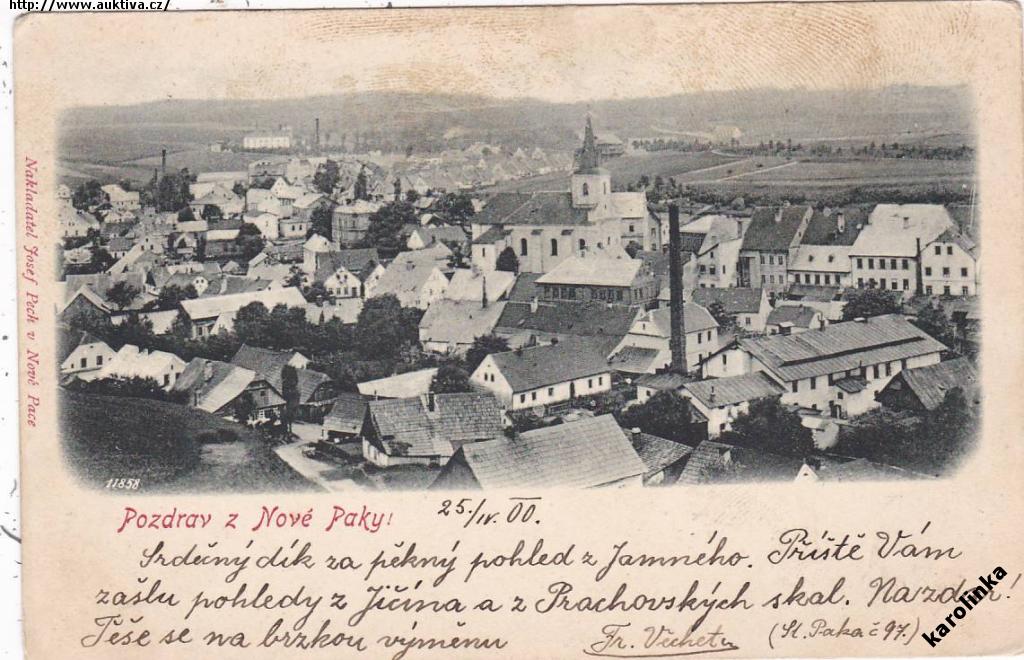 http://www.auktiva.cz/
Nakladatel Josef Pech v Nové Pace
11858
Pozdrav z Nové Paky!
25./IV. 00.
Srdečný dík za pěkný pohled z Jamného. Příště Vám
zášlu pohledy z Jičína a z Prachovských skal. Nazdar!
Těše se na brzkou výměnu
Fr. (St. Paka č 97.)
karolinka